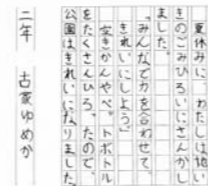 夏休みに、わたしは地い
きのごみひろいにさんかし
ました。
「みんなで力を合わせて、
きれいにしよう。」
空きかんやペットボトル
をたくさんひろったので、
公園はきれいになりました。
二年 古家ゆめか